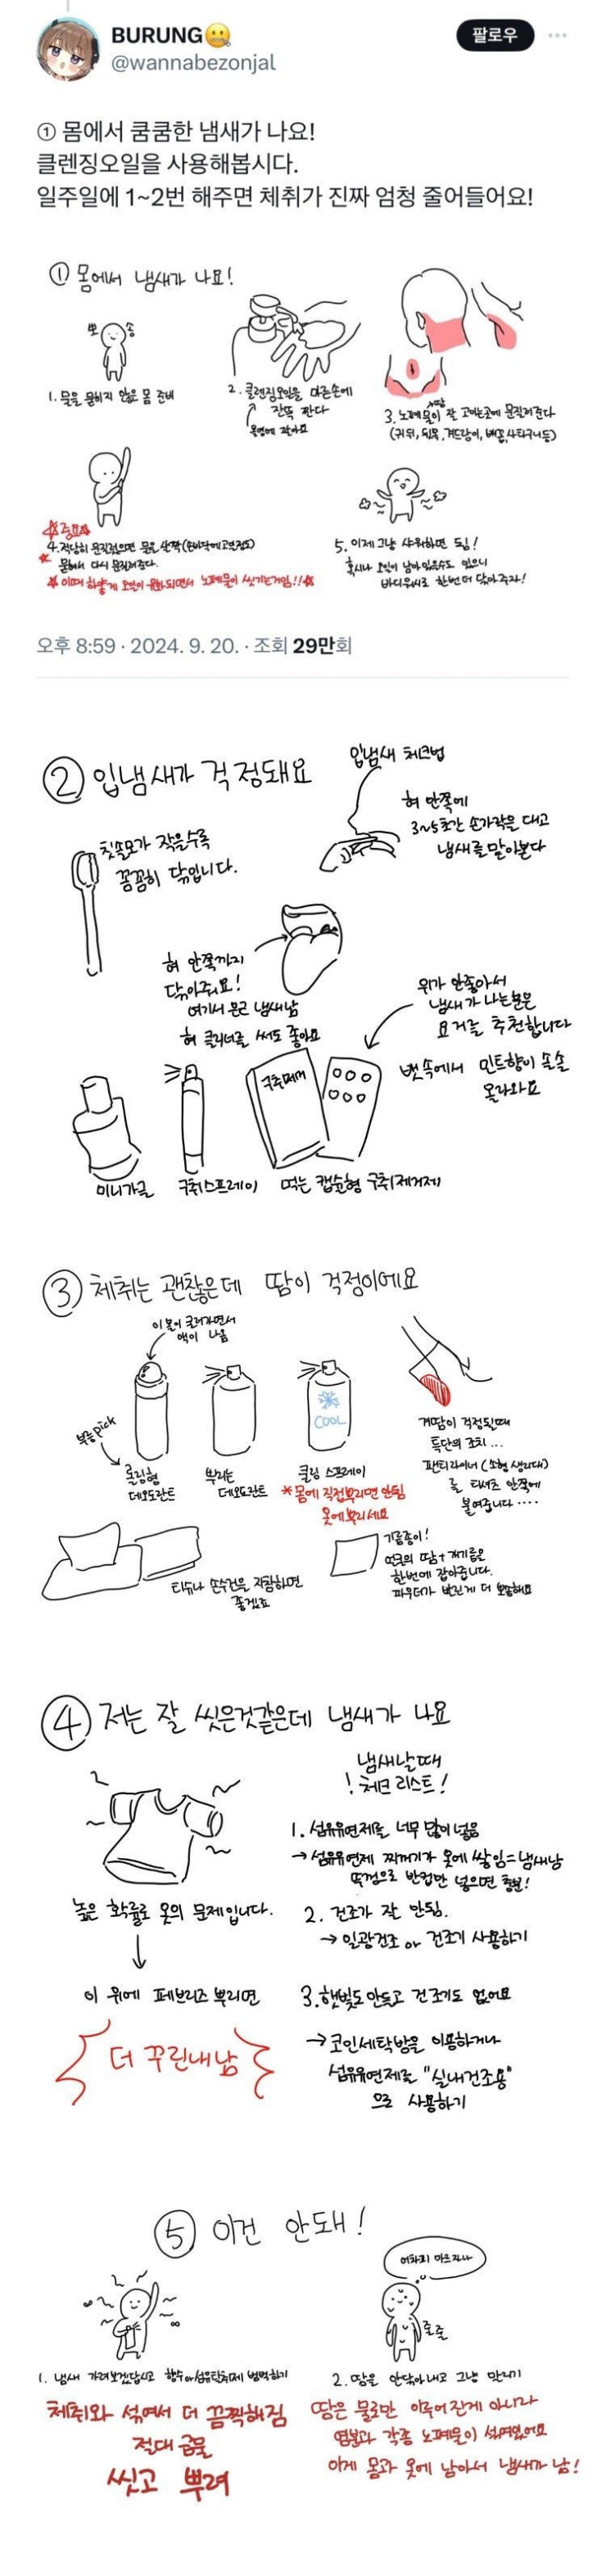 BURUNG
팔로우
@wannabezonjal
① 몸에서 쿰쿰한 냄새가 나요!
클렌징오일을 사용해봅시다.
일주일에 1~2번 해주면 체취가 진짜 엄청 줄어들어요!
① 몸에서 냄새가 나요!
뽀 송
1. 물을 묻히지 않은 몸 준비
2. 클렌징오일을 마른손에
잔뜩 짠다
3. 노폐물이 잘 고이는곳에 문질러준다
땀
(귀 뒤, 뒷목, 겨드랑이, 배꼽, 사타구니 등)
☆중요☆
4. 적당히 문질렀으면 물을 살짝(손바닥에 고일정도)
묻혀서 다시 문질러준다.
☆ 이때 하얗게 오일이 유화되면서 노폐물이 씻기는거임!!☆
5. 이제 그냥 샤워하면 됨!
혹시나 오일이 남아있을수도 있으니
바디워시로 한번 더 닦아주자!
오후 8:59 · 2024. 9. 20. · 조회 29만회
② 입냄새가 걱정돼요
입냄새 체크법
혀 안쪽에
3~5초간 손가락을 대고
냄새를 맡아본다
칫솔모가 작을수록
꼼꼼히 닦입니다.
혀 안쪽까지
닦아주세요!
여기서 몬근 냄새남
혀 클리너를 써도 좋아요
위가 안좋아서
냄새가 나는분은
요거를 추천합니다
뱃속에서 민트향이 솔솔
올라와요
구취제거
미니가글
구취스프레이
먹는 캡슐형 구취제거제
③ 체취는 괜찮은데 땀이 걱정이에요
이 볼이 굴러가면서
액이 나옴
부릉pick
롤링형
데오도란트
뿌리는
데오도란트
COOL
쿨링 스프레이
*몸에 직접뿌리면 안됨
옷에뿌리세요
겨땀이 걱정될때
특단의 조치...
팬티라이너 (소형 생리대)
를 티셔츠 안쪽에
붙여줍니다....
티슈나 손수건을 지참하면
좋겠죠
기름종이!
얼굴의 땀+개기름을
한번에 잡아줍니다.
파우더가 발린게 더 뽀송해요
④ 저는 잘 씻은것같은데 냄새가 나요
냄새날때
! 체크리스트!
1. 섬유유연제를 너무 많이 넣음
→ 섬유유연제 찌꺼기가 옷에 쌓임=냄새남
뚜껑으로 반컵만 넣으면 충분!
높은 확률로 옷의 문제입니다.
2. 건조가 잘 안됨.
→ 일광건조 or 건조기 사용하기
이 위에 페브리즈 뿌리면
더 꾸린내남
3. 햇빛도 안들고 건조기도 없어요
→ 코인세탁방을 이용하거나
섬유유연제를 "실내건조용"
으로 사용하기
⑤ 이건 안돼!
어차피 마르자나
줄줄
1. 냄새 가려보겠답시고 향수or섬유탈취제 범벅하기
체취와 섞여서 더 끔찍해짐
절대 금물
씻고 뿌려
2. 땀을 안닦아내고 그냥 말리기
땀은 물로만 이루어진게 아니라
염분과 각종 노폐물이 섞여있어요
이게 몸과 옷에 남아서 냄새가 남!